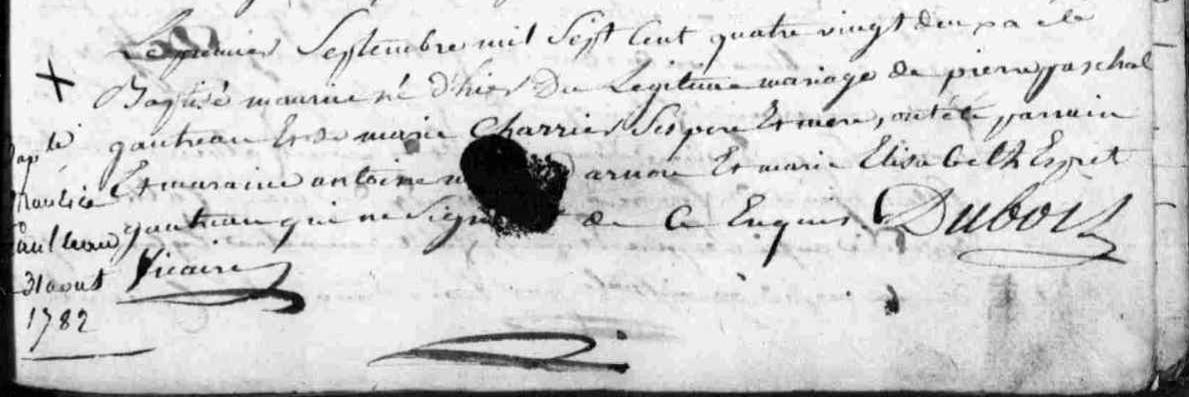 Le premier Septembre mil Sept Cent quatre vingt deux a ele
Baptisé maurice né d'hier Du Legitime mariage de pierre paschal
gautreau Et de marie Charrier Ses pere Et mere, ont été parrain
Et maraine antoine arnou Et marie Elisabelh Espret
gautreau qui ne Sign de Ce Enquis. Dubois
Vicaire
Bap te
Maurice
31 aout
1782